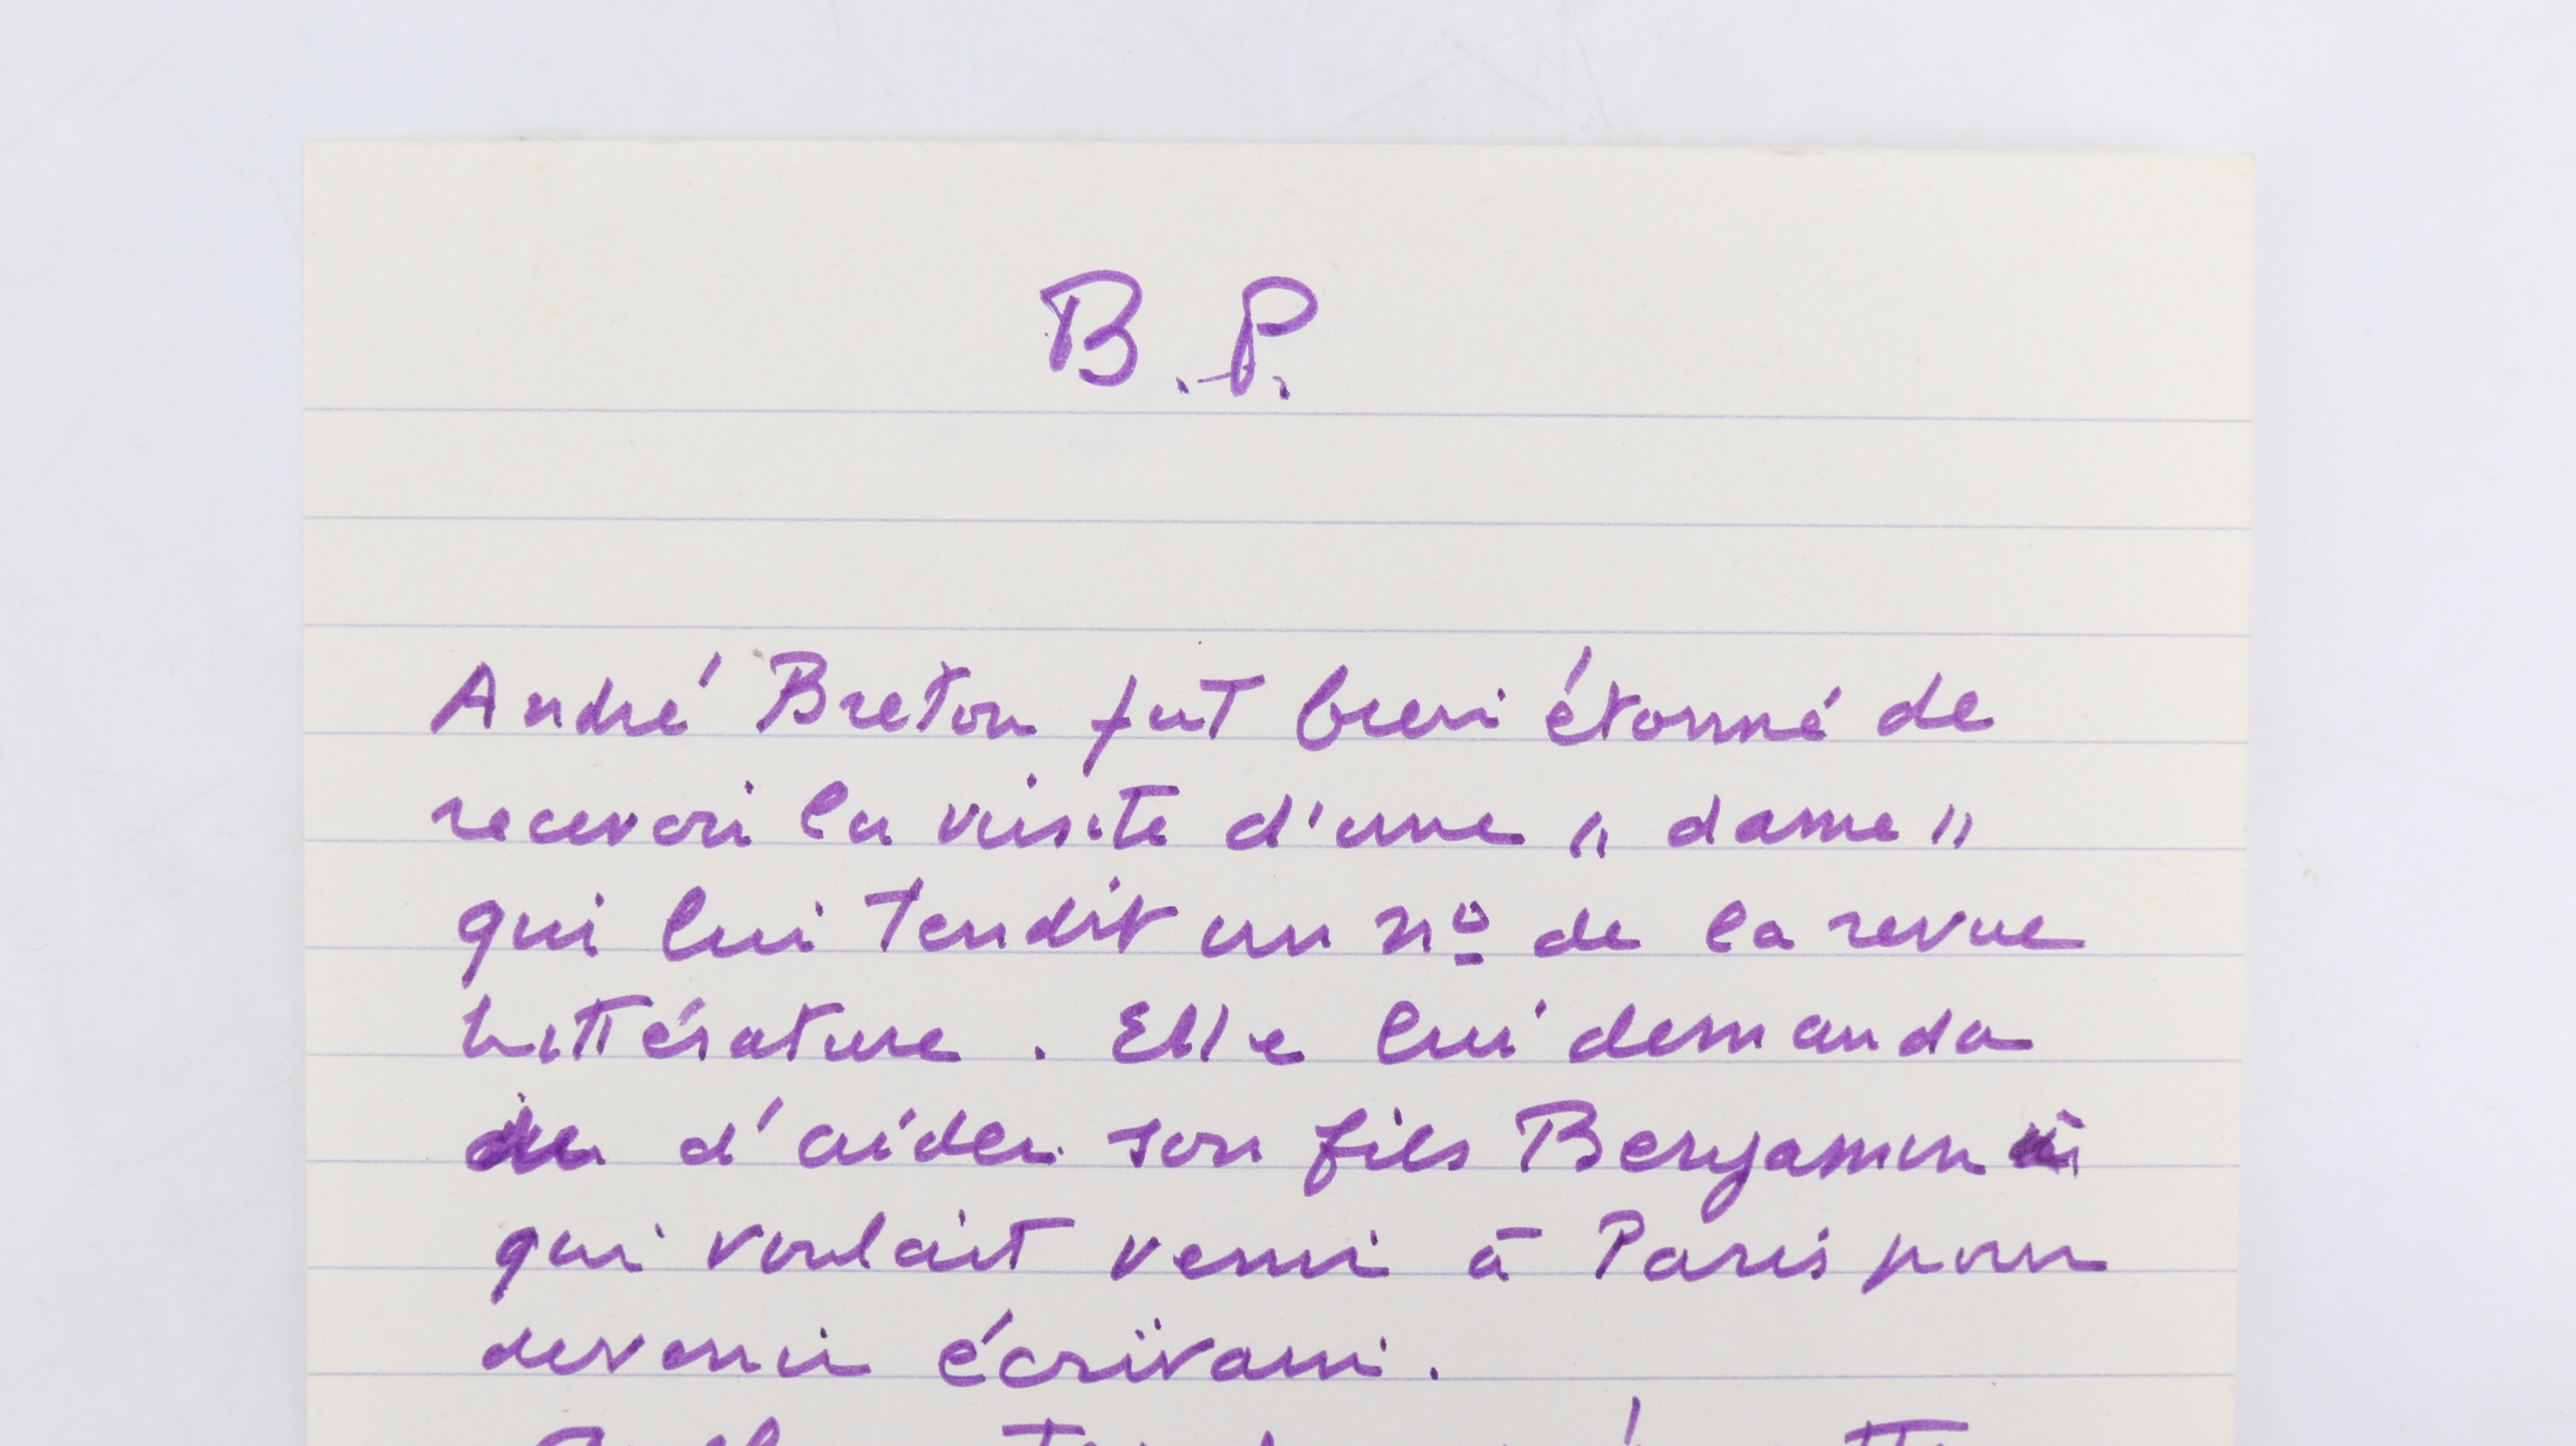 B.P.
André Breton fut bien étonné de
recevoir la visite d'une " dame "
qui lui tendit un nº de la revue
Littérature . Elle lui demanda
d'aider son fils Benjamin
qui voulait venir à Paris pour
devenir écrivain .